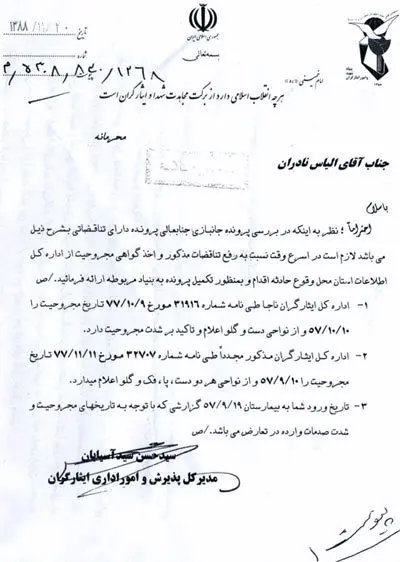 جمهوری اسلامی ایران
بسمه‌تعالی
تاریخ ۱۳۸۸/۱۱/۲۰
شماره
۸۳۰/۱۲۶۸
امام خمینی (ره):
هر چه انقلاب اسلامی دارد از برکت مجاهدت شهدا و ایثارگران است
محرمانه
جناب آقای الیاس نادران
باسلام
احتراماً؛ نظر به اینکه در بررسی پرونده جانبازی جنابعالی پرونده دارای تناقضاتی بشرح ذیل
می باشد لازم است در اسرع وقت نسبت به رفع تناقضات مذکور و اخذ گواهی مجروحیت از اداره کل
اطلاعات استان محل وقوع حادثه اقدام و بمنظور تکمیل پرونده به بنیاد مربوطه ارائه فرمائید./ص
۱- اداره کل ایثارگران ناجا طی نامه شماره ۳۱۹۱۶ مورخ ۷۷/۱۰/۹ تاریخ مجروحیت را
۵۷/۱۰/۱۰ و از نواحی دست و گلو اعلام و تاکید بر شدت مجروحیت دارد.
۲- اداره کل ایثارگران مذکور مجدداً طی نامه شماره ۳۲۷۰۷ مورخ ۷۷/۱۱/۱۱ تاریخ
مجروحیت را ۵۷/۹/۱۰ و از نواحی هر دو دست، پا، فک و گلو اعلام میدارد.
۳- تاریخ ورود شما به بیمارستان ۵۷/۹/۱۹ گزارشی که با توجه به تاریخهای مجروحیت و
شدت صدمات وارده در تعارض می باشد./ص
سیدحسن سیدآسیابان
مدیرکل پذیرش و امور اداری ایثارگران
پیوست ۱